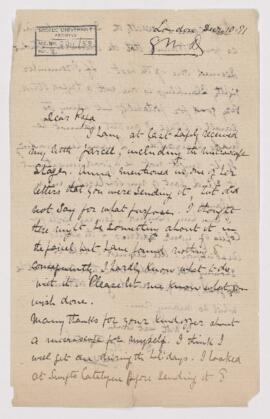 McGILL UNIVERSITY
ARCHIVES
London Dec 10. 91
Dear Papa
I have at last safely received
my both parcel, including the microscope
stage. Anna mentioned in one of her
letters that you were sending it but did
not say for what purpose. I thought
there might be something about it in
the parcel but have found nothing
consequently I hardly know what to do
with it. Please let me know what you
wish done.
Many thanks for your kind offer about
a microscope for myself. I think I
will get one during the holidays. I looked
at Swifts Catalogue before sending it &